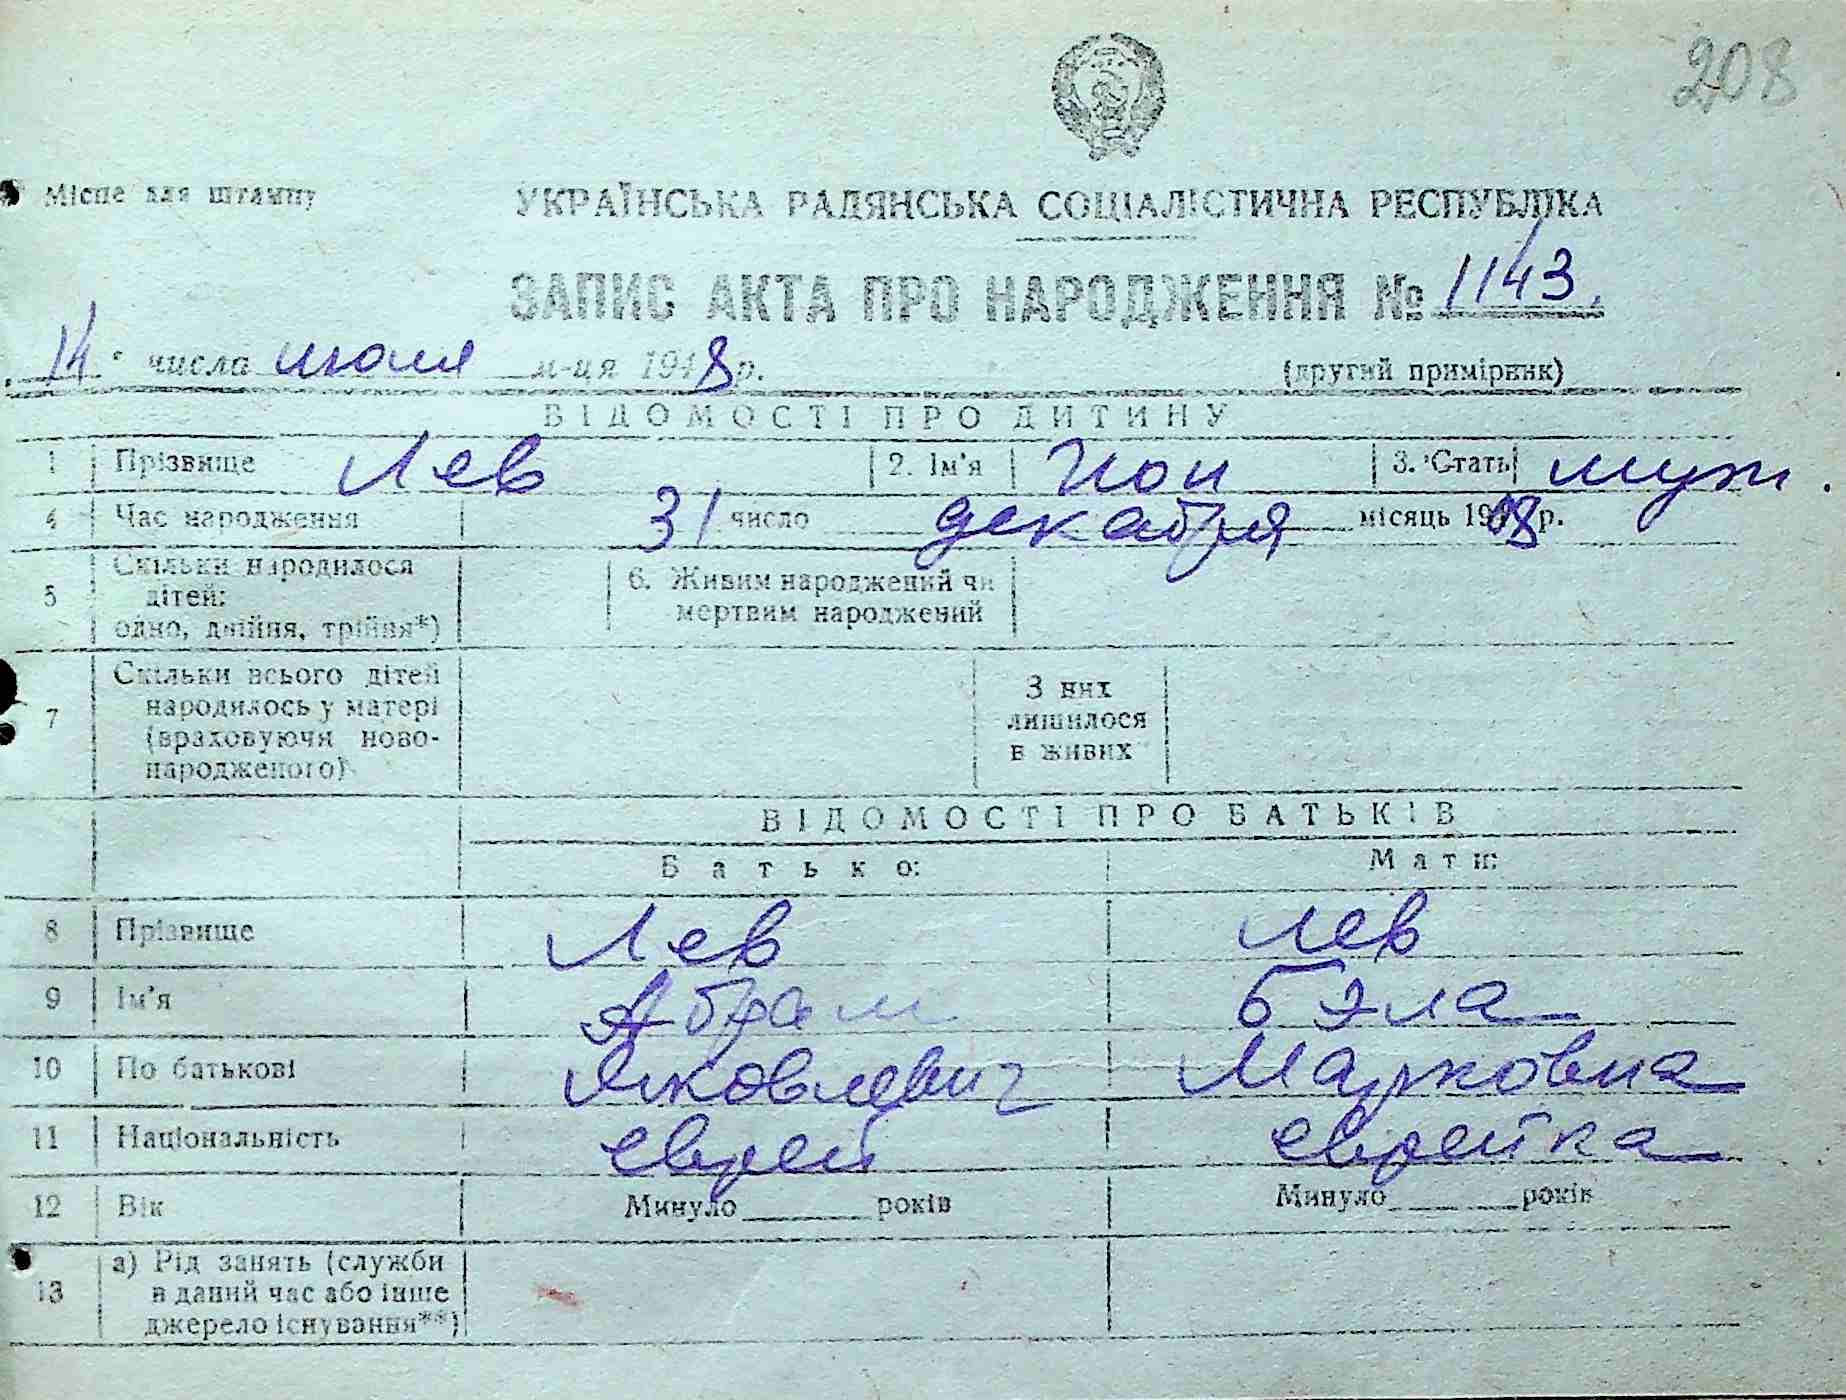 208
Місце для штампу
УКРАЇНСЬКА РАДЯНСЬКА СОЦІАЛІСТИЧНА РЕСПУБЛІКА
ЗАПИС АКТА ПРО НАРОДЖЕННЯ № 1143
14 числа июля м-ця 1948 р. (другий примірник)
ВІДОМОСТІ ПРО ДИТИНУ
1 Прізвище Лев 2. Ім'я Ион 3. Стать муж.
4 Час народження 31 число декабря місяць 1908 р.
5 Скільки народилося дітей: одно, двійня, трійня*) 6. Живим народжений чи мертвим народжений
7 Скільки всього дітей народилось у матері (враховуючи новонародженого) З них лишилося в живих
ВІДОМОСТІ ПРО БАТЬКІВ
Батько: Мати:
8 Прізвище Лев Лев
9 Ім'я Абрам Бэла
10 По батькові Яковлевич Марковна
11 Національність еврей еврейка
12 Вік Минуло років Минуло років
13 а) Рід занять (служби в даний час або інше джерело існування**)